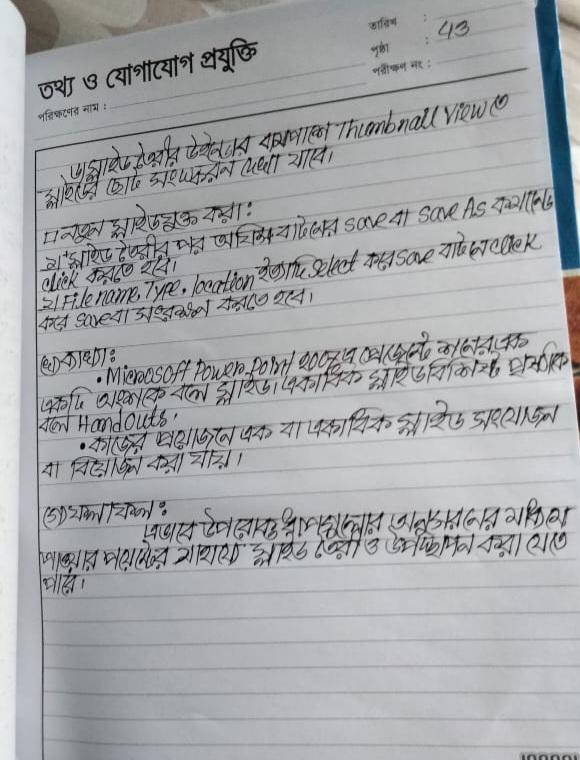 তারিখ :
তথ্য ও যোগাযোগ প্রযুক্তি
পৃষ্ঠা : 43
পরীক্ষণ নং :
পরিক্ষণের নাম :
স্লাইড তৈরীর উইন্ডোর বামপাশে Thumbnail View তে
স্লাইডের ছোট সংস্করন দেখা যাবে।
□ নতুন স্লাইডযুক্ত করা:
১। স্লাইড তৈরীর পর অফিস বাটনের save বা save As কমান্ডে
click করতে হবে।
২। File name, Type, location ইত্যাদি Select করে save বাটনে click
করে save বা সংরক্ষন করতে হবে।
ব্যাখ্যা:
• Microsoft Power Point 2007 এ প্রেজেন্টেশনের এক
একটি অংশকে বলে স্লাইড। একাধিক স্লাইডবিশিষ্ট
বলে Handouts.
• কাজের প্রয়োজনে এক বা একাধিক স্লাইড সংযোজন
বা বিয়োজন করা যায়।
ফলাফল:
এভাবে উপরোক্ত ধাপগুলোর অনুসরনের মাধ্যমে
পাওয়ার পয়েন্টের সাহায্যে স্লাইড তৈরী ও উপস্থাপন করা যেতে
পারে।